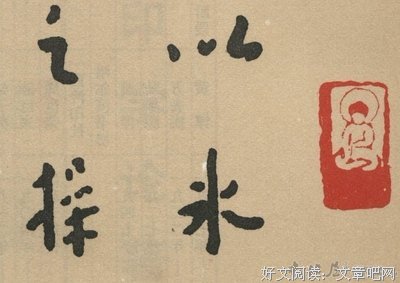 以氷
之操
好文阅读：文章吧网